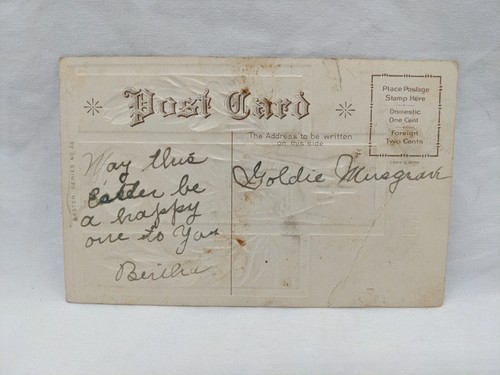 Post Card
Place Postage
Stamp Here
Domestic
One Cent
Foreign
Two Cents
The Address to be written
on this side
EASTER SERIES NO.
May this
Easter be
a happy
one to You
Bertha
Goldie Musgrave